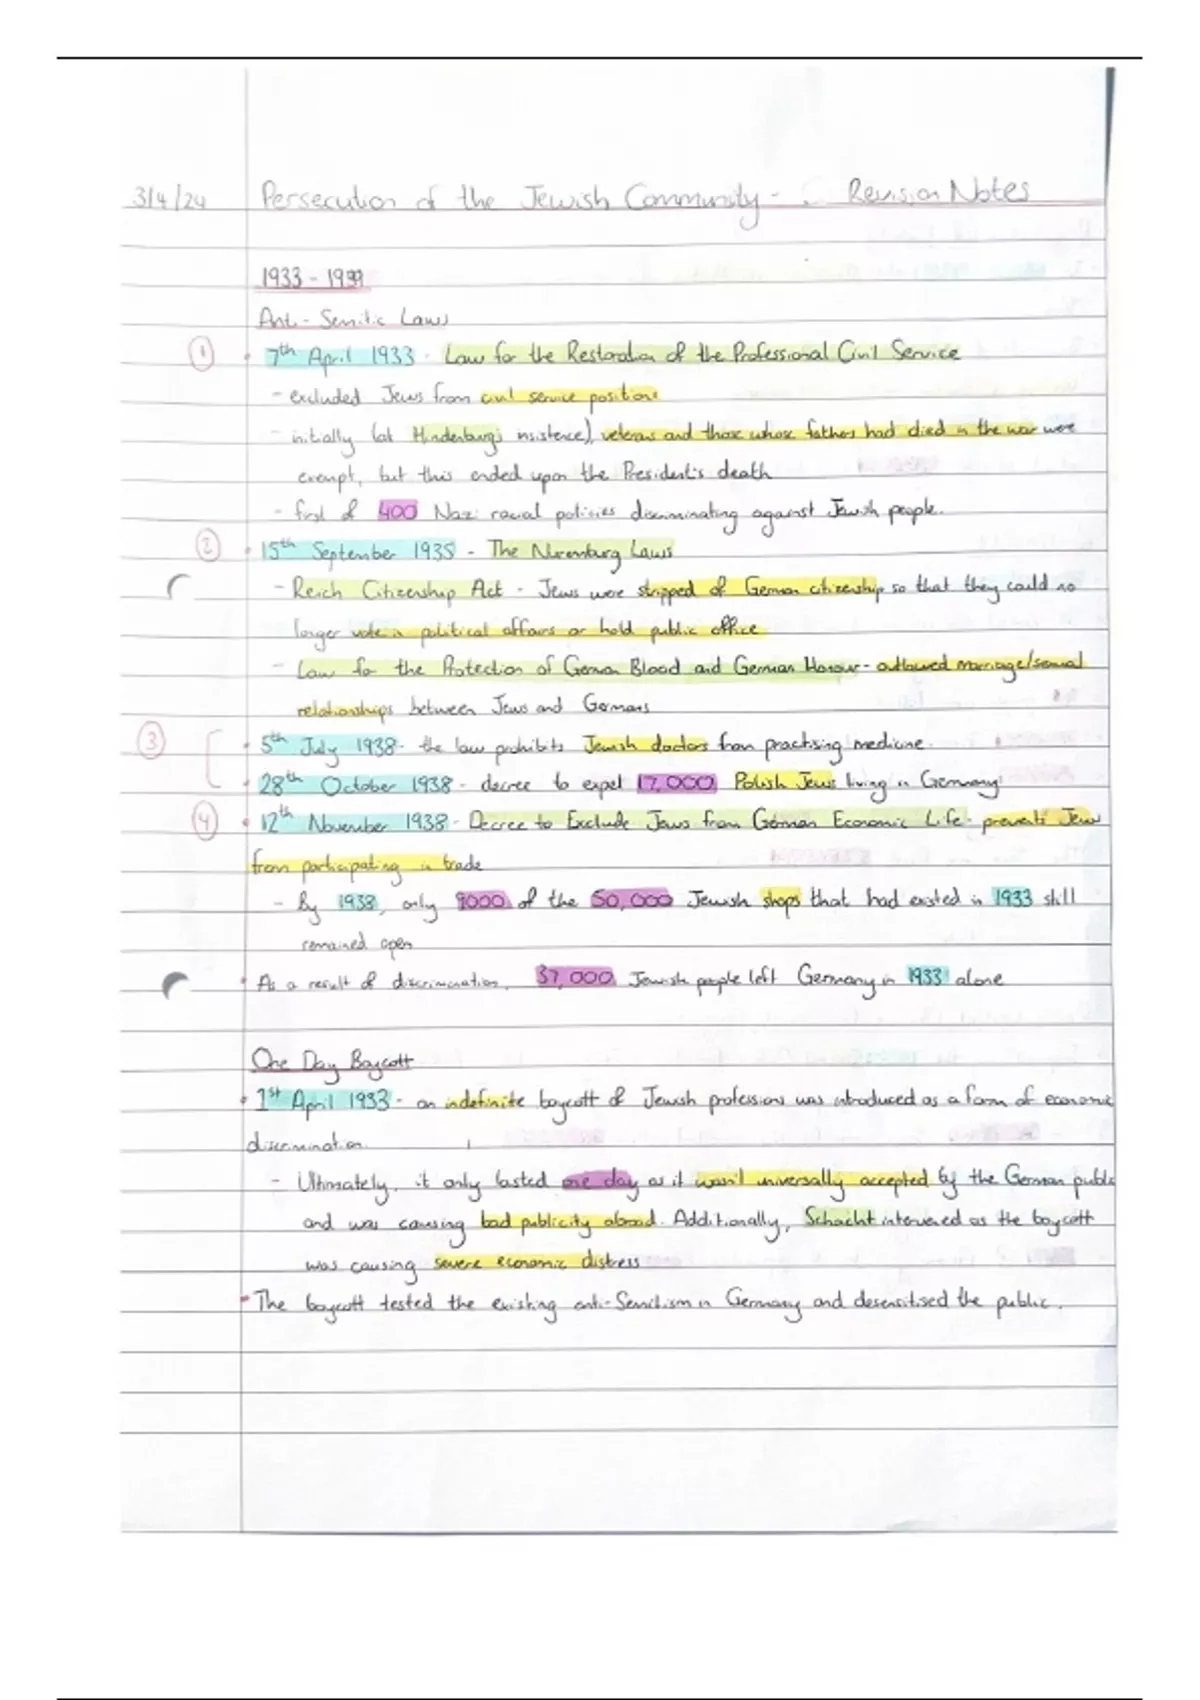 3/4/24 Persecution of the Jewish Community - Revision Notes
1933 - 1939
Anti-Semitic Laws
1 • 7th April 1933 - Law for the Restoration of the Professional Civil Service
- excluded Jews from civil service positions
- initially (at Hindenburg's insistence), veterans and those whose fathers had died in the war were
exempt, but this ended upon the President's death
- first of 400 Nazi racial policies discriminating against Jewish people.
2 • 15th September 1935 - The Nuremburg Laws
- Reich Citizenship Act - Jews were stripped of German citizenship so that they could no
longer vote in political affairs or hold public office
- Law for the Protection of German Blood and German Honour - outlawed marriage/sexual
relationships between Jews and Germans
3 • 5th July 1938 - the law prohibits Jewish doctors from practising medicine.
• 28th October 1938 - decree to expel 17,000 Polish Jews living in Germany
4 • 12th November 1938 - Decree to Exclude Jews from German Economic Life - prevents Jews
from participating in trade
- By 1938, only 9000 of the 50,000 Jewish shops that had existed in 1933 still
remained open
• As a result of discrimination, 37,000 Jewish people left Germany in 1933 alone
One Day Boycott
• 1st April 1933 - an indefinite boycott of Jewish professions was introduced as a form of economic
discrimination.
- Ultimately, it only lasted one day as it wasn't universally accepted by the German public
and was causing bad publicity abroad. Additionally, Schacht intervened as the boycott
was causing severe economic distress
• The boycott tested the existing anti-Semitism in Germany and desensitised the public.